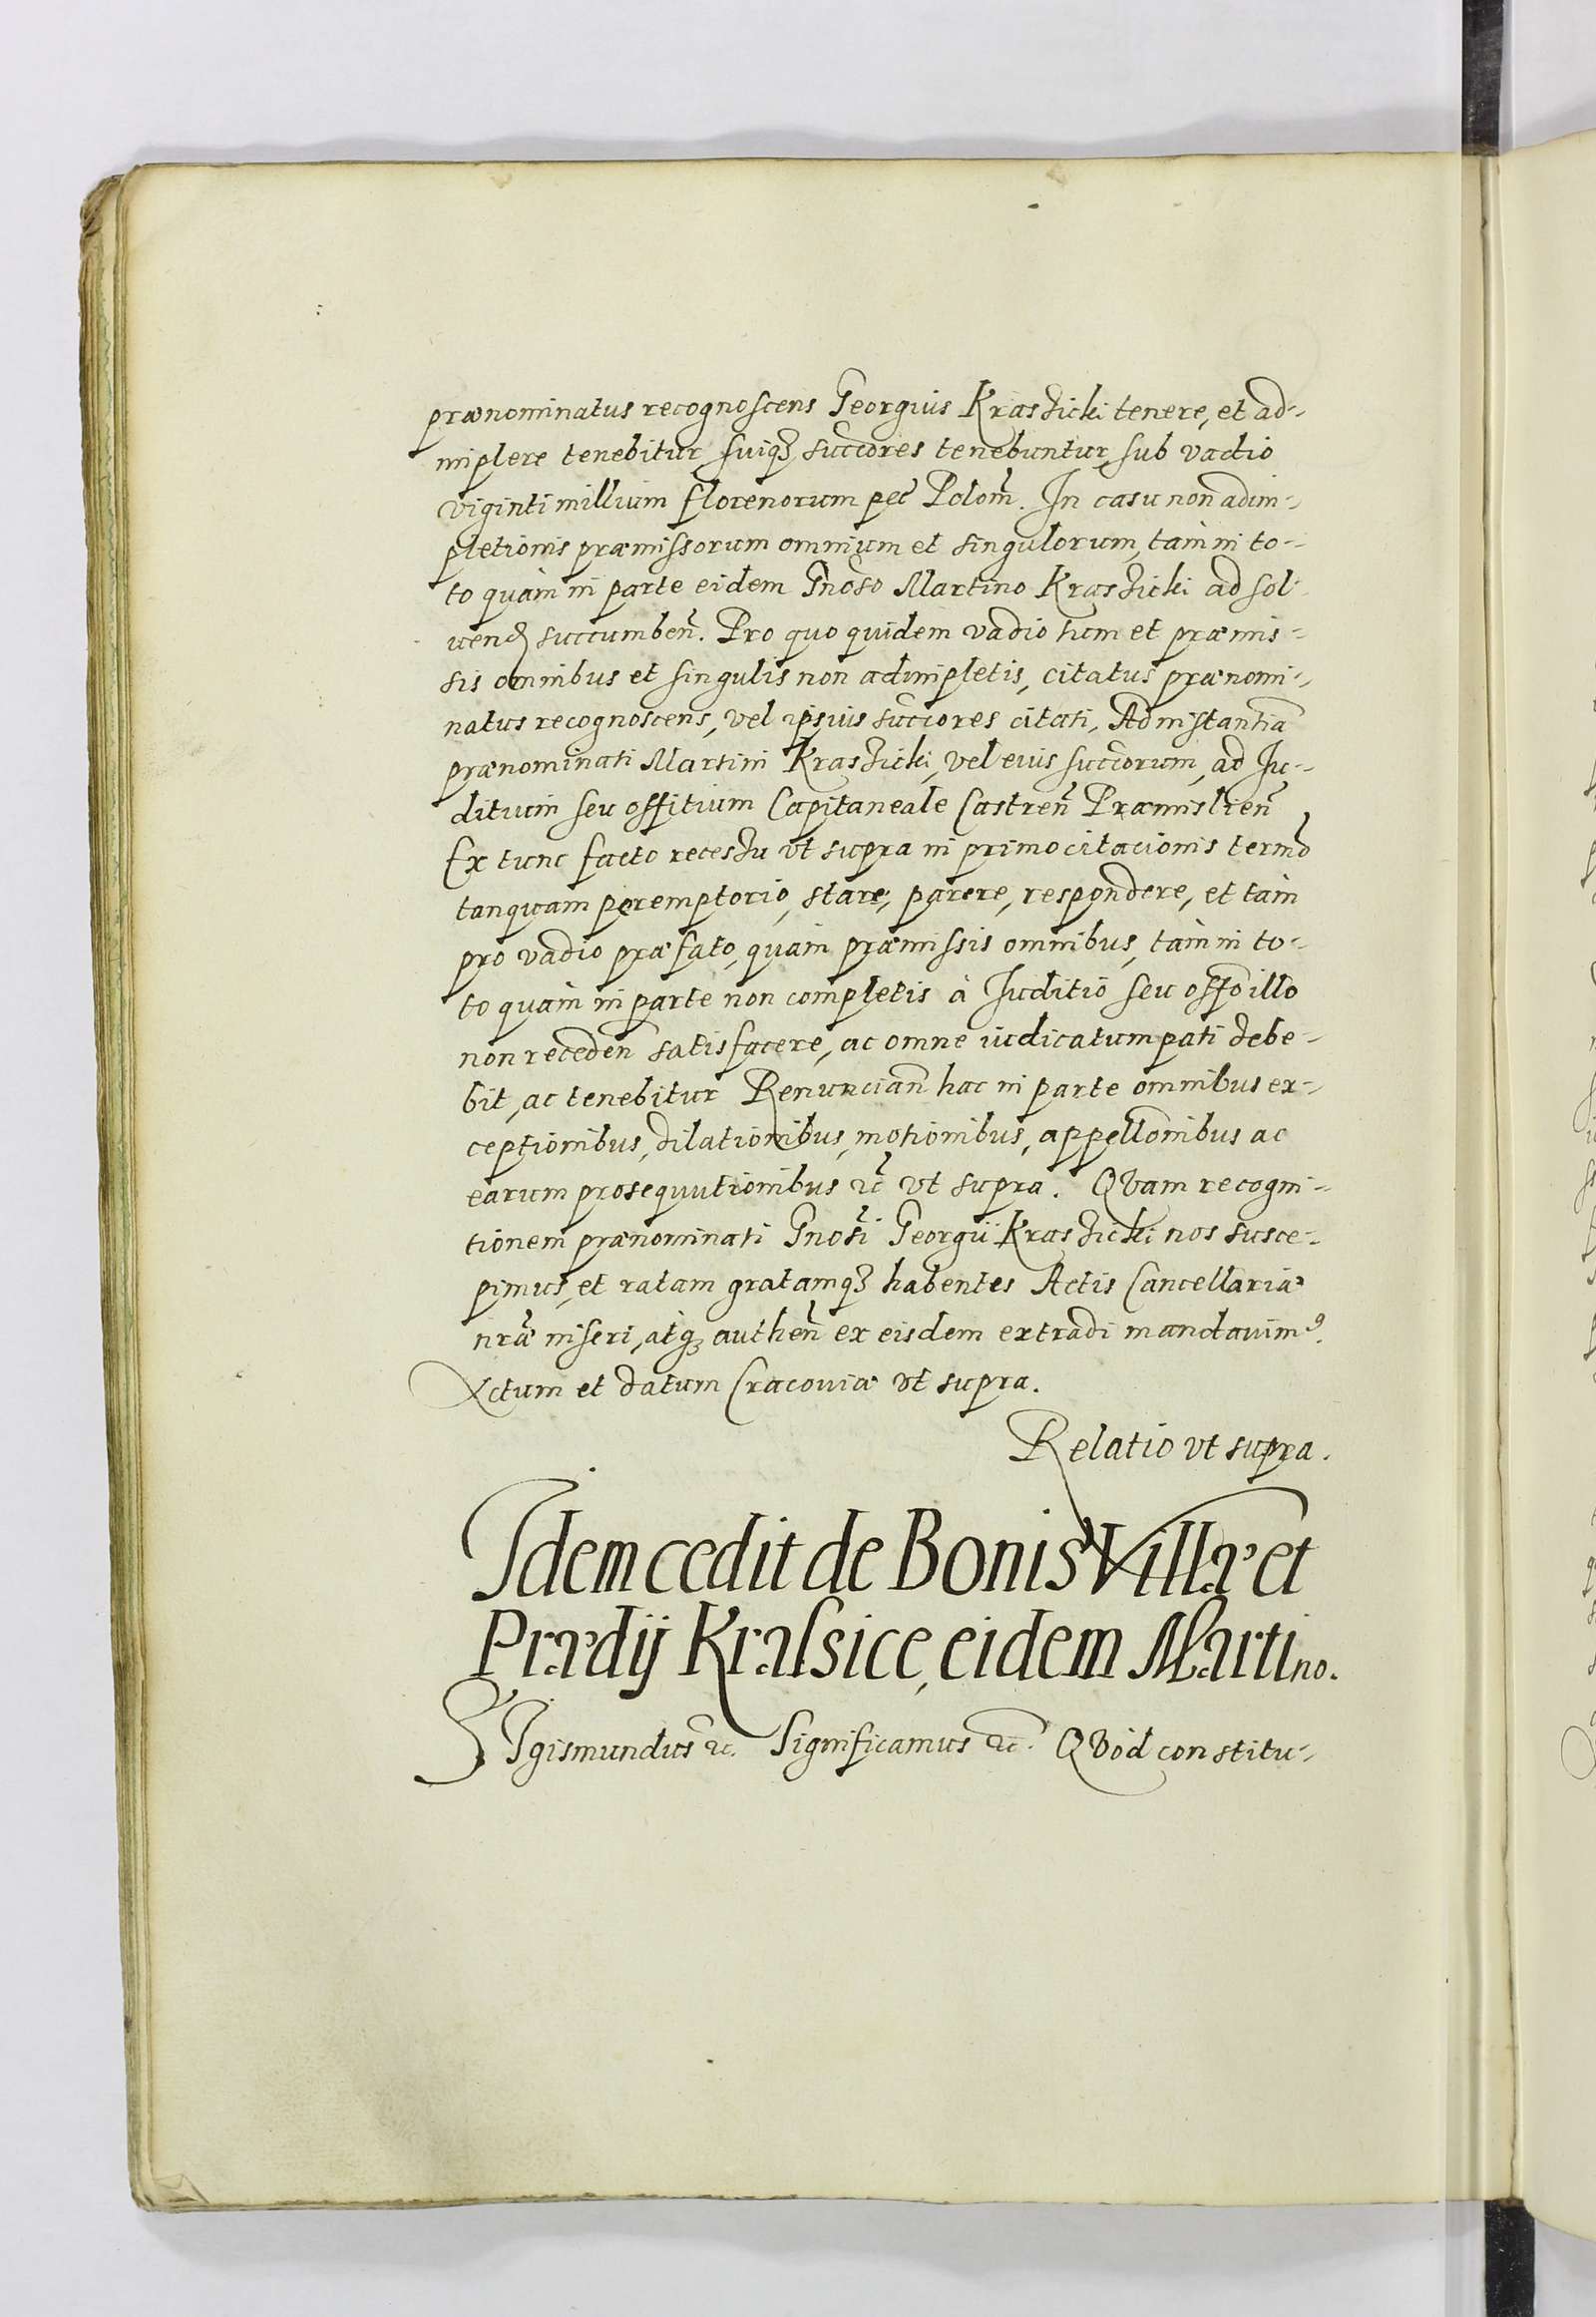 prænominatus recognoscens Georgius Krasicki tenere, et ad-
implere tenebitur, suiq₃ succ̃ores tenebuntur, sub vadio
viginti millium florenorum pec̃ Polon̄. In casu non adim-
pletionis præmissorum omnium et singulorum, tam in to-
to quàm in parte eidem Gn̄oso Martino Krasicki ad sol-
uend succumben̄. Pro quo quidem vadio tum et præmis-
sis omnibus et singulis non adimpletis, citatus prænomi-
natus recognoscens, vel ipsius succ̃ores citati, Ad instantiā
prænominati Martini Krasicki, vel eius succ̃orum, ad Iu-
ditium seu offitium Capitaneale Castren̄ Præmislien̄
Ex tunc facto recessu vt supra in primo citacionis termō
tanquam peremptorio, stare, parere, respondere, et tam
pro vadio præfato, quàm præmissis omnibus, tam in to-
to quàm in parte non completis à Iuditio seu offō illo
non receden̄ satisfacere, ac omne iudicatum pati debe-
bit, ac tenebitur Renuncian̄ hac in parte omnibus ex-
ceptionibus, dilationibus, motionibus, appellōnibus ac
earum prosequutionibus ꝛc̃ vt supra. QVam recogni-
tionem prænominati Gn̄osi Georgii Krasicki nos susce-
pimus, et ratam gratamq₃ habentes Actis Cancellariæ
nr̄æ inseri, atq₃ authen̄ ex eisdem extradi mandauimꝰ.
Actum et datum Cracouiæ vt supra.
Relatio vt supra.
Idem cedit de Bonis Villæ et
Prædij Krasice, eidem Martino.
SIgismundus ꝛc. Significamus ꝛc̃. QVòd constitu-